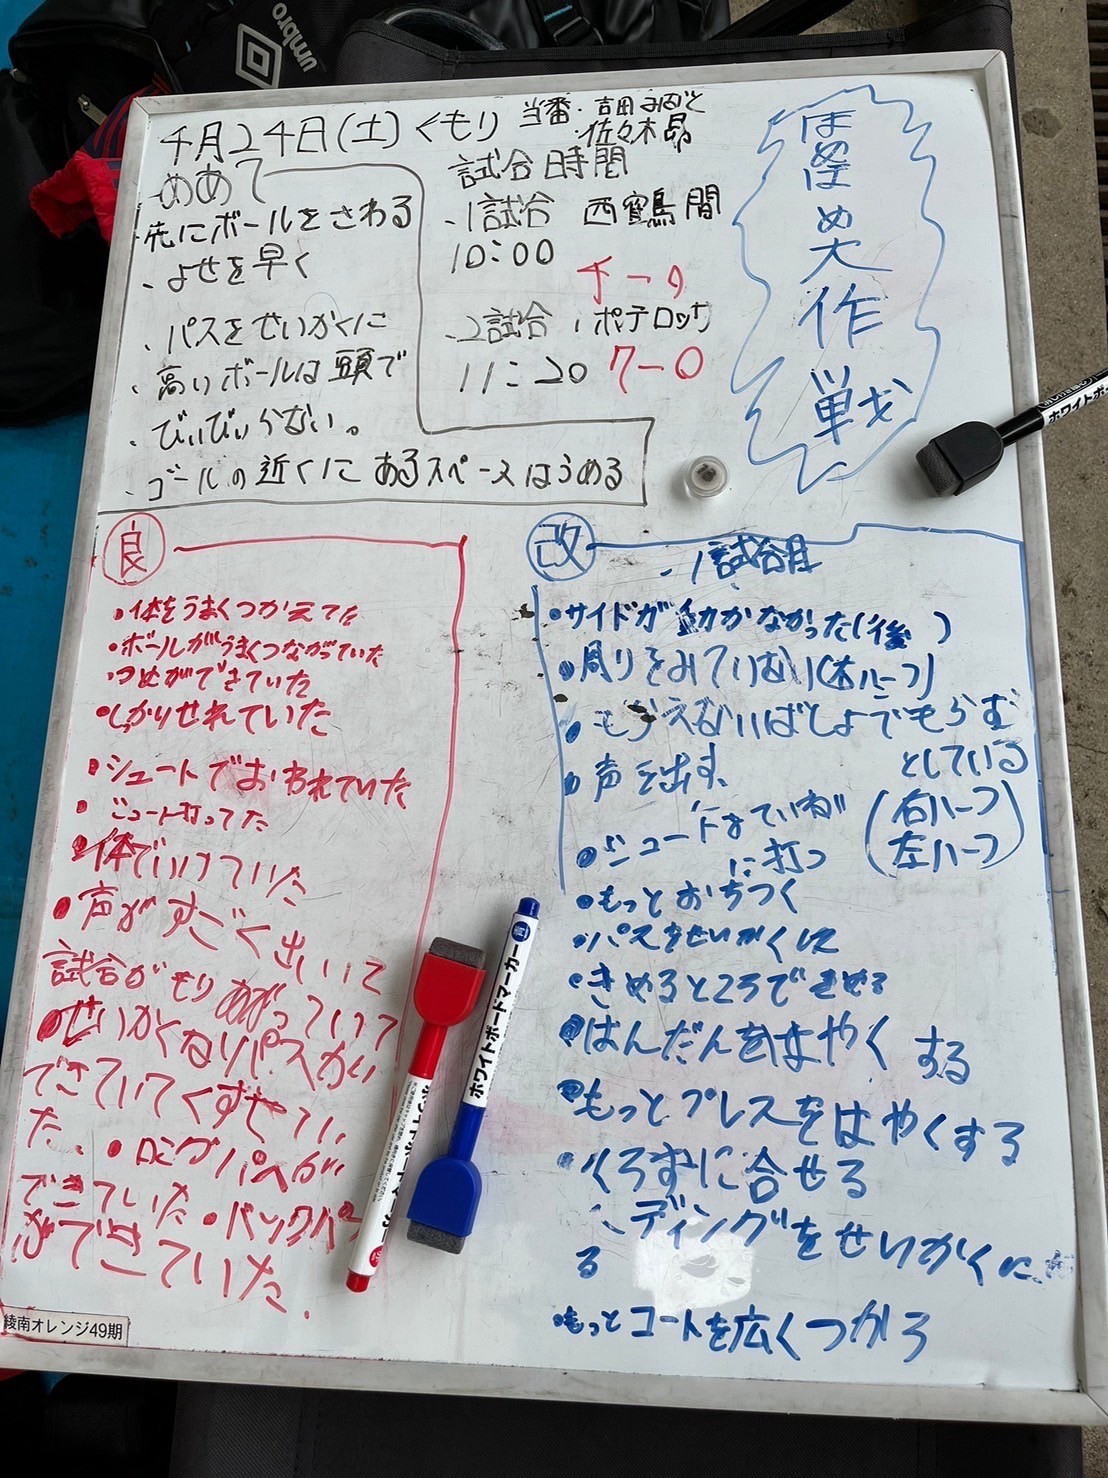 umbro
千月24日(土)くもり
当番・吉田
・佐々木昴
めあて
・先にボールをさわる
・よせを早く
・パスをせいかくに
・高いボールは頭で
・びびらない。
・ゴールの近くにあるスペースはうめる
試合時間
・1試合 西鶴間
10:00
チーム
・2試合:ポテロッサ
11:20 7-0
ほめほめ大作戦
ホワイトボー
良
・体をうまくつかえてた
・ボールがうまくつながっていた
・つめができていた
・しかりせれていた
・シュートでおわれていた
・シュート打ってた
・体でいけていた
・声がすごく出ていて
試合がもりあがっていて
・せいかくなパスが
できていてくずせてい
た。・ロングパスが
できていた・バックパス
ができていた。
改
・1試合目
・サイドが動かなかった(後)
・周りをみていない(右ハーフ)
・もらえないばしょでもらおう
としている
(右ハーフ
左ハーフ)
・声を出す、
・シュートをていねい
に打つ
・もっとおちつく
・パスをせいかくに
・きめるところできめる
・はんだんをはやくする
・もっとプレスをはやくする
・くろずに合せる
・ヘディングをせいかくに
る
・もっとコートを広くつかう
ホワイトボードマーカー
綾南オレンジ49期